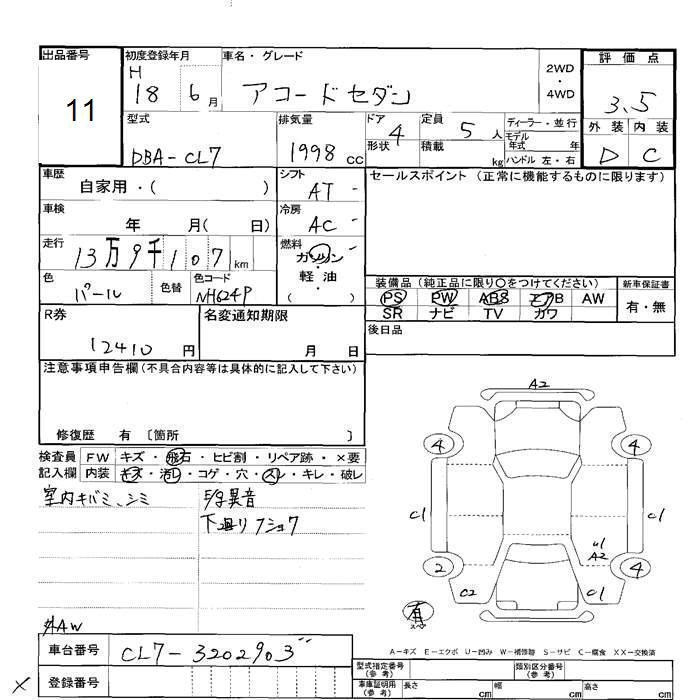 出品番号 初度登録年月 車名・グレード 評価点
11
H 18 6月 アコードセダン 2WD・4WD 3.5
型式 排気量 ドア 4 定員 5人 ディーラー・並行 外装 内装
DBA-CL7 1998cc 形状 積載 kg モデル年式 年 ハンドル 左・右 D C
車歴 自家用・( ) シフト AT セールスポイント(正常に機能するものに限ります)
車検 年 月( 日) 冷房 AC
走行 13万9千107km 燃料 ガソリン・軽油・( )
色 パール 色替 色コード NH624P
装備品(純正品に限り〇をつけてください) 新車保証書
PS PW ABS エアB AW 有・無
SR ナビ TV カワ
R券 12410円 名変通知期限 月 日 後日品
注意事項申告欄(不具合内容等は具体的に記入して下さい)
修復歴 有 〔箇所 〕
検査員 FW キズ・飛石・ヒビ割・リペア跡・×要
記入欄 内装 キズ・汚レ・コゲ・穴・スレ・キレ・破レ
室内キバミ、シミ
異音
下廻りフショク
AW
A2
4 4
C1 C1
U1
A2
2 4
C2 C1
有
A-キズ E-エクボ U-凹み W-補修跡 S-サビ C-腐食 XX-交換済
車台番号 CL7-3202903
登録番号
型式指定番号(参考) 類別区分番号(参考)
車庫証明用(参考) 長さ cm 幅 cm 高さ cm
×